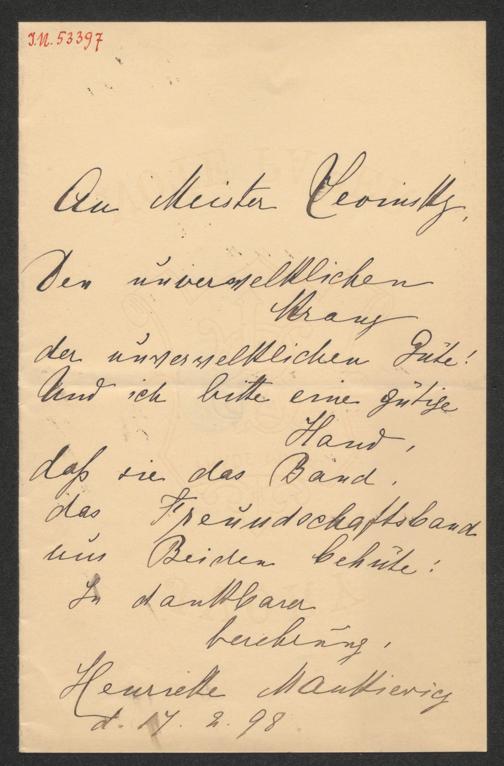 J.N. 53397
An Meister Lewinsky,
Den unverwelklichen
Kranz
der unverwelklichen Güte!
Und ich bitte eine gütige
Hand,
daß sie das Band,
das Freundschaftsband
uns Beiden behüte!
In dankbarer
Verehrung,
Henriette Mankiewicz
d. 17. 2. 98